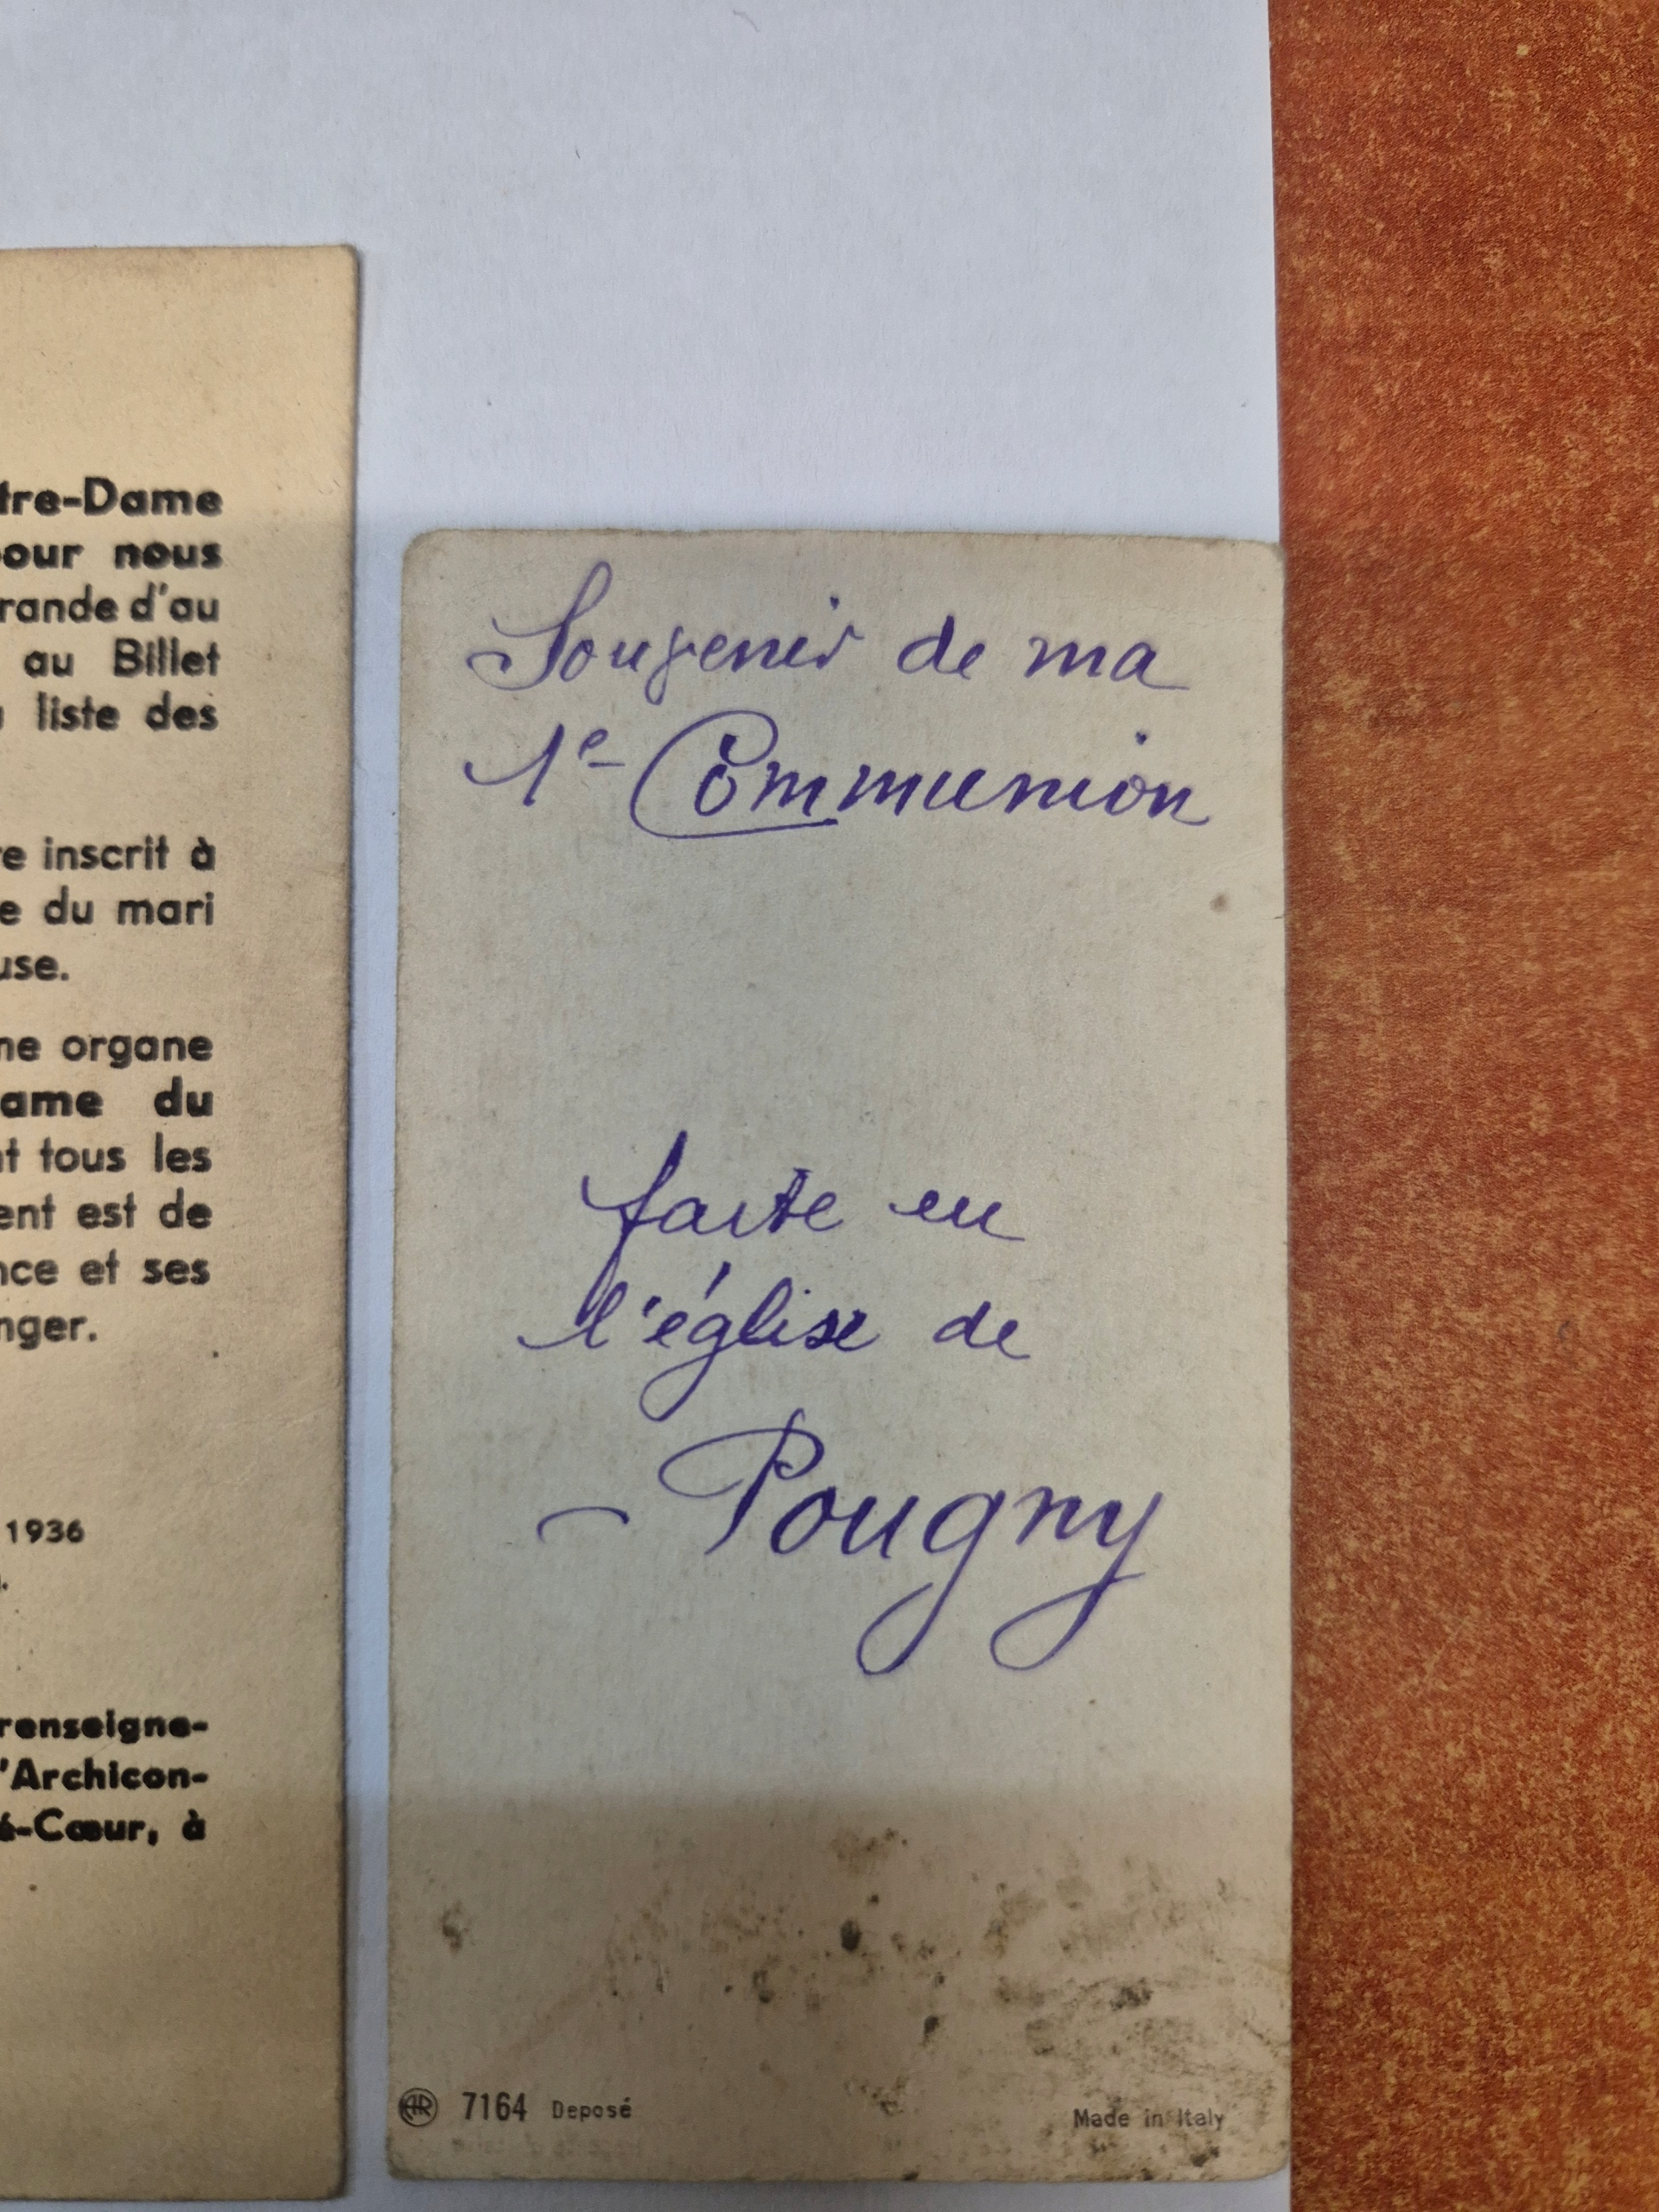 tre-Dame
our nous
rande d'au
au Billet
liste des
e inscrit à
e du mari
use.
ne organe
ame du
nt tous les
ent est de
nce et ses
nger.
1936
renseigne-
'Archicon-
é-Cœur, à
Souvenir de ma
1e Communion
faite en
l'église de
- Pougny
AR 7164 Deposé
Made in Italy